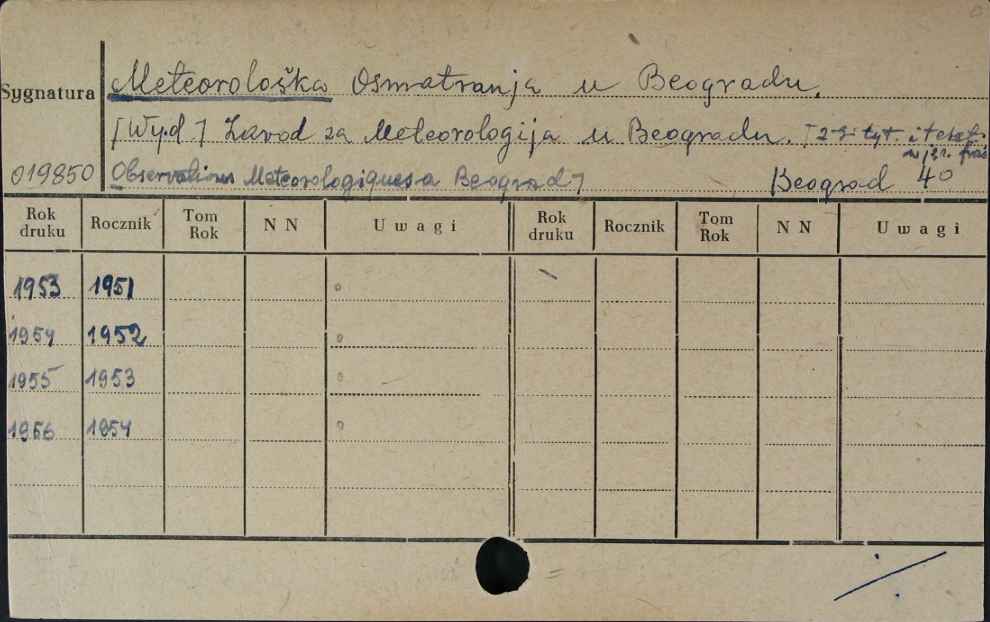 Sygnatura
Meteorološka Osmatranja u Beogradu.
[Wyd] Zavod za Meteorologiju u Beogradu. [2-gi tyt. i tekst
w jęz. franc
019850 Observations Meteorologiques a Beograd] Beograd 4°
Rok druku Rocznik Tom Rok NN Uwagi Rok druku Rocznik Tom Rok NN Uwagi
1953 1951
1954 1952
1955 1953
1956 1954